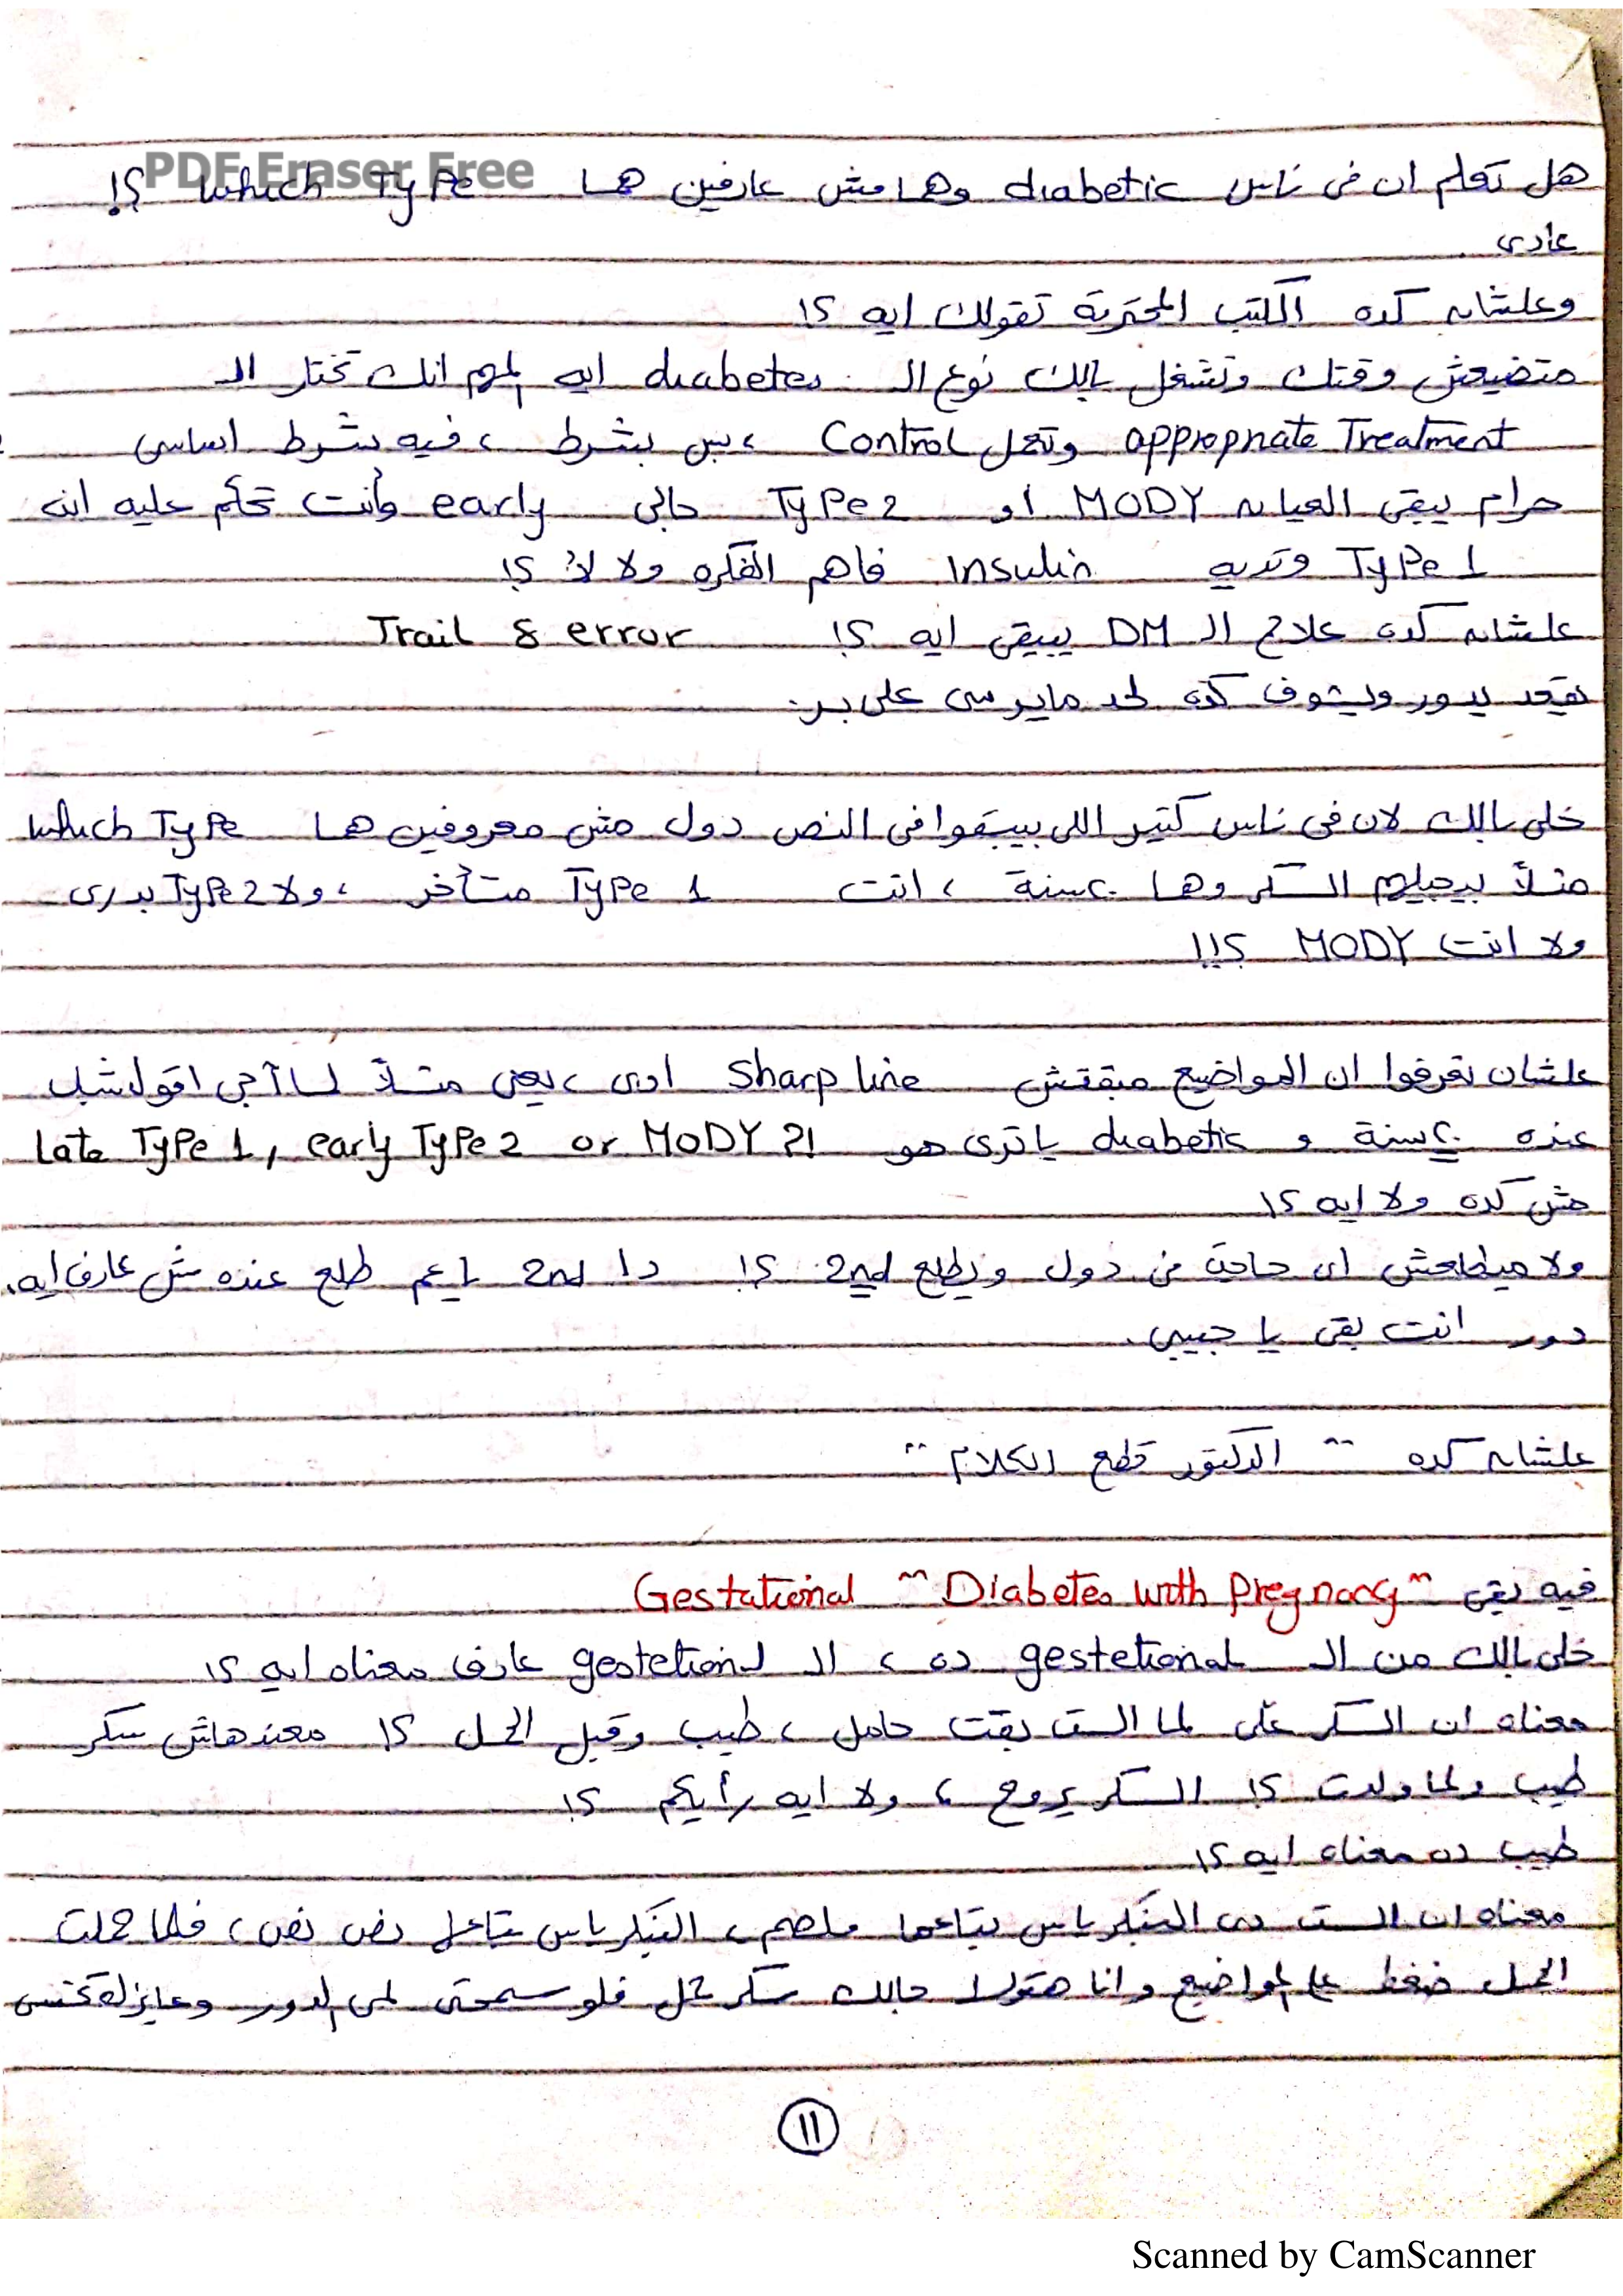 PDF Eraser Free
هل تعلم ان فى ناس diabetic وهما مش عارفين هما which Type ؟!
عادى
وعلشان كده الكتب المحترمة تقولك ايه ؟!
متضيعش وقتك وتشغل بالك نوع الـ diabetes ايه المهم انك تختار الـ
appropriate Treatment وتعمل Control ، بس بشرط ، فيه شرط اساسى
حرام يبقى العيان MODY او Type 2 جالى early وأنت تحكم عليه انه
Type 1 وتديه Insulin فاهم الفكره ولا لأ ؟!
علشان كده علاج الـ DM يبقى ايه ؟! Trail & error
يقعد يدور ويشوف كده لحد مايرسى على بر.
خلى بالك لان فى ناس كتير اللى بيبقوا فى النص دول مش معروفين هما which Type
مثلاً بيجيلهم السكر وهما ٢٠ سنة ، انت Type 1 متأخر ، ولا Type 2 بدرى
ولا انت MODY ؟!!
علشان تعرفوا ان المواضيع مبقتش Sharp line اوى ، يعنى مثلاً لما آجى اقول شاب
عنده ٢٠ سنة و diabetic يا ترى هو Late Type 1, early Type 2 or MODY ?!
مش كده ولا ايه ؟!
ولا ميطلعش اى حاجة من دول ويطلع 2nd ؟! دا 2nd يا عم طلع عنده مش عارف ايه.
دور انت بقى يا حبيبى.
علشان كده " الدكتور قطع الكلام "
فيه بقى Gestational "Diabetes with pregnancy"
خلى بالك من الـ gestetional ده ، الـ gestetional عارف معناه ايه ؟!
معناه ان السكر على لما الست بقت حامل ، طيب وقبل الحمل ؟! معندهاش سكر
طيب ولما ولدت ؟! السكر يروح ، ولا ايه رأيكم ؟!
طيب ده معناه ايه ؟!
معناه ان الست دى البنكرياس بتاعها ملصم ، البنكرياس بتاعها نص نص ، فلما حملت
الحمل ضغط على المواضيع وانا هقولك جالك سكر حمل فلو سمحتى لمى الدور
11
Scanned by CamScanner